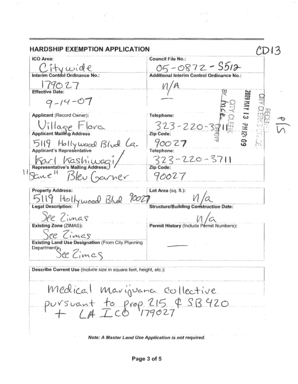 HARDSHIP EXEMPTION APPLICATION
CD13
ICO Area:
Council File No.:
Citywide
05-0872-S512
Interim Control Ordinance No.:
Additional Interim Control Ordinance No.:
179027
n/A
Effective Date:
9-14-07
2009 MAY 13 PM 6:09
CITY CLERK
BY
Applicant (Record Owner):
Telephone:
Village Flora
323-220-3711
Applicant Mailing Address
Zip Code:
5119 Hollywood Blvd La.
90027
Applicant's Representative
Telephone:
Karl Kashiwagi/
323-220-3711
Representative's Mailing Address:
Zip Code:
"Same" Bleu Garner
90027
Property Address:
Lot Area (sq. ft.):
5119 Hollywood Blvd 90027
n/a
Legal Description:
Structure/Building Construction Date:
See Zimas
n/a
Existing Zone (ZIMAS):
Permit History (Include Permit Numbers):
See Zimas
Existing Land Use Designation (From City Planning
Department):
See Zimas
Describe Current Use (Include size in square feet, height, etc.):
Medical marijuana collective
pursuant to prop 215 & SB 420
+ LA ICO 179027
Note: A Master Land Use Application is not required.
Page 3 of 5